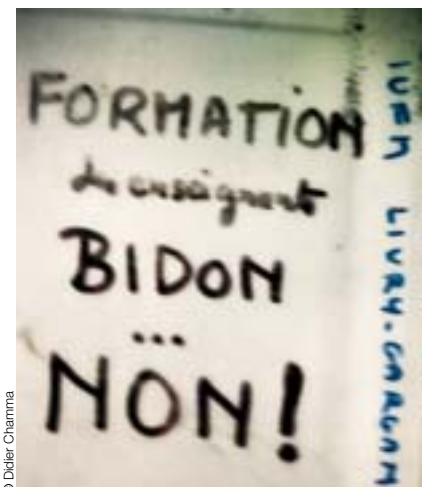 FORMATION
des enseignants
BIDON
...
NON!
IUFM LIVRY-GARGAN
© Didier Chamma